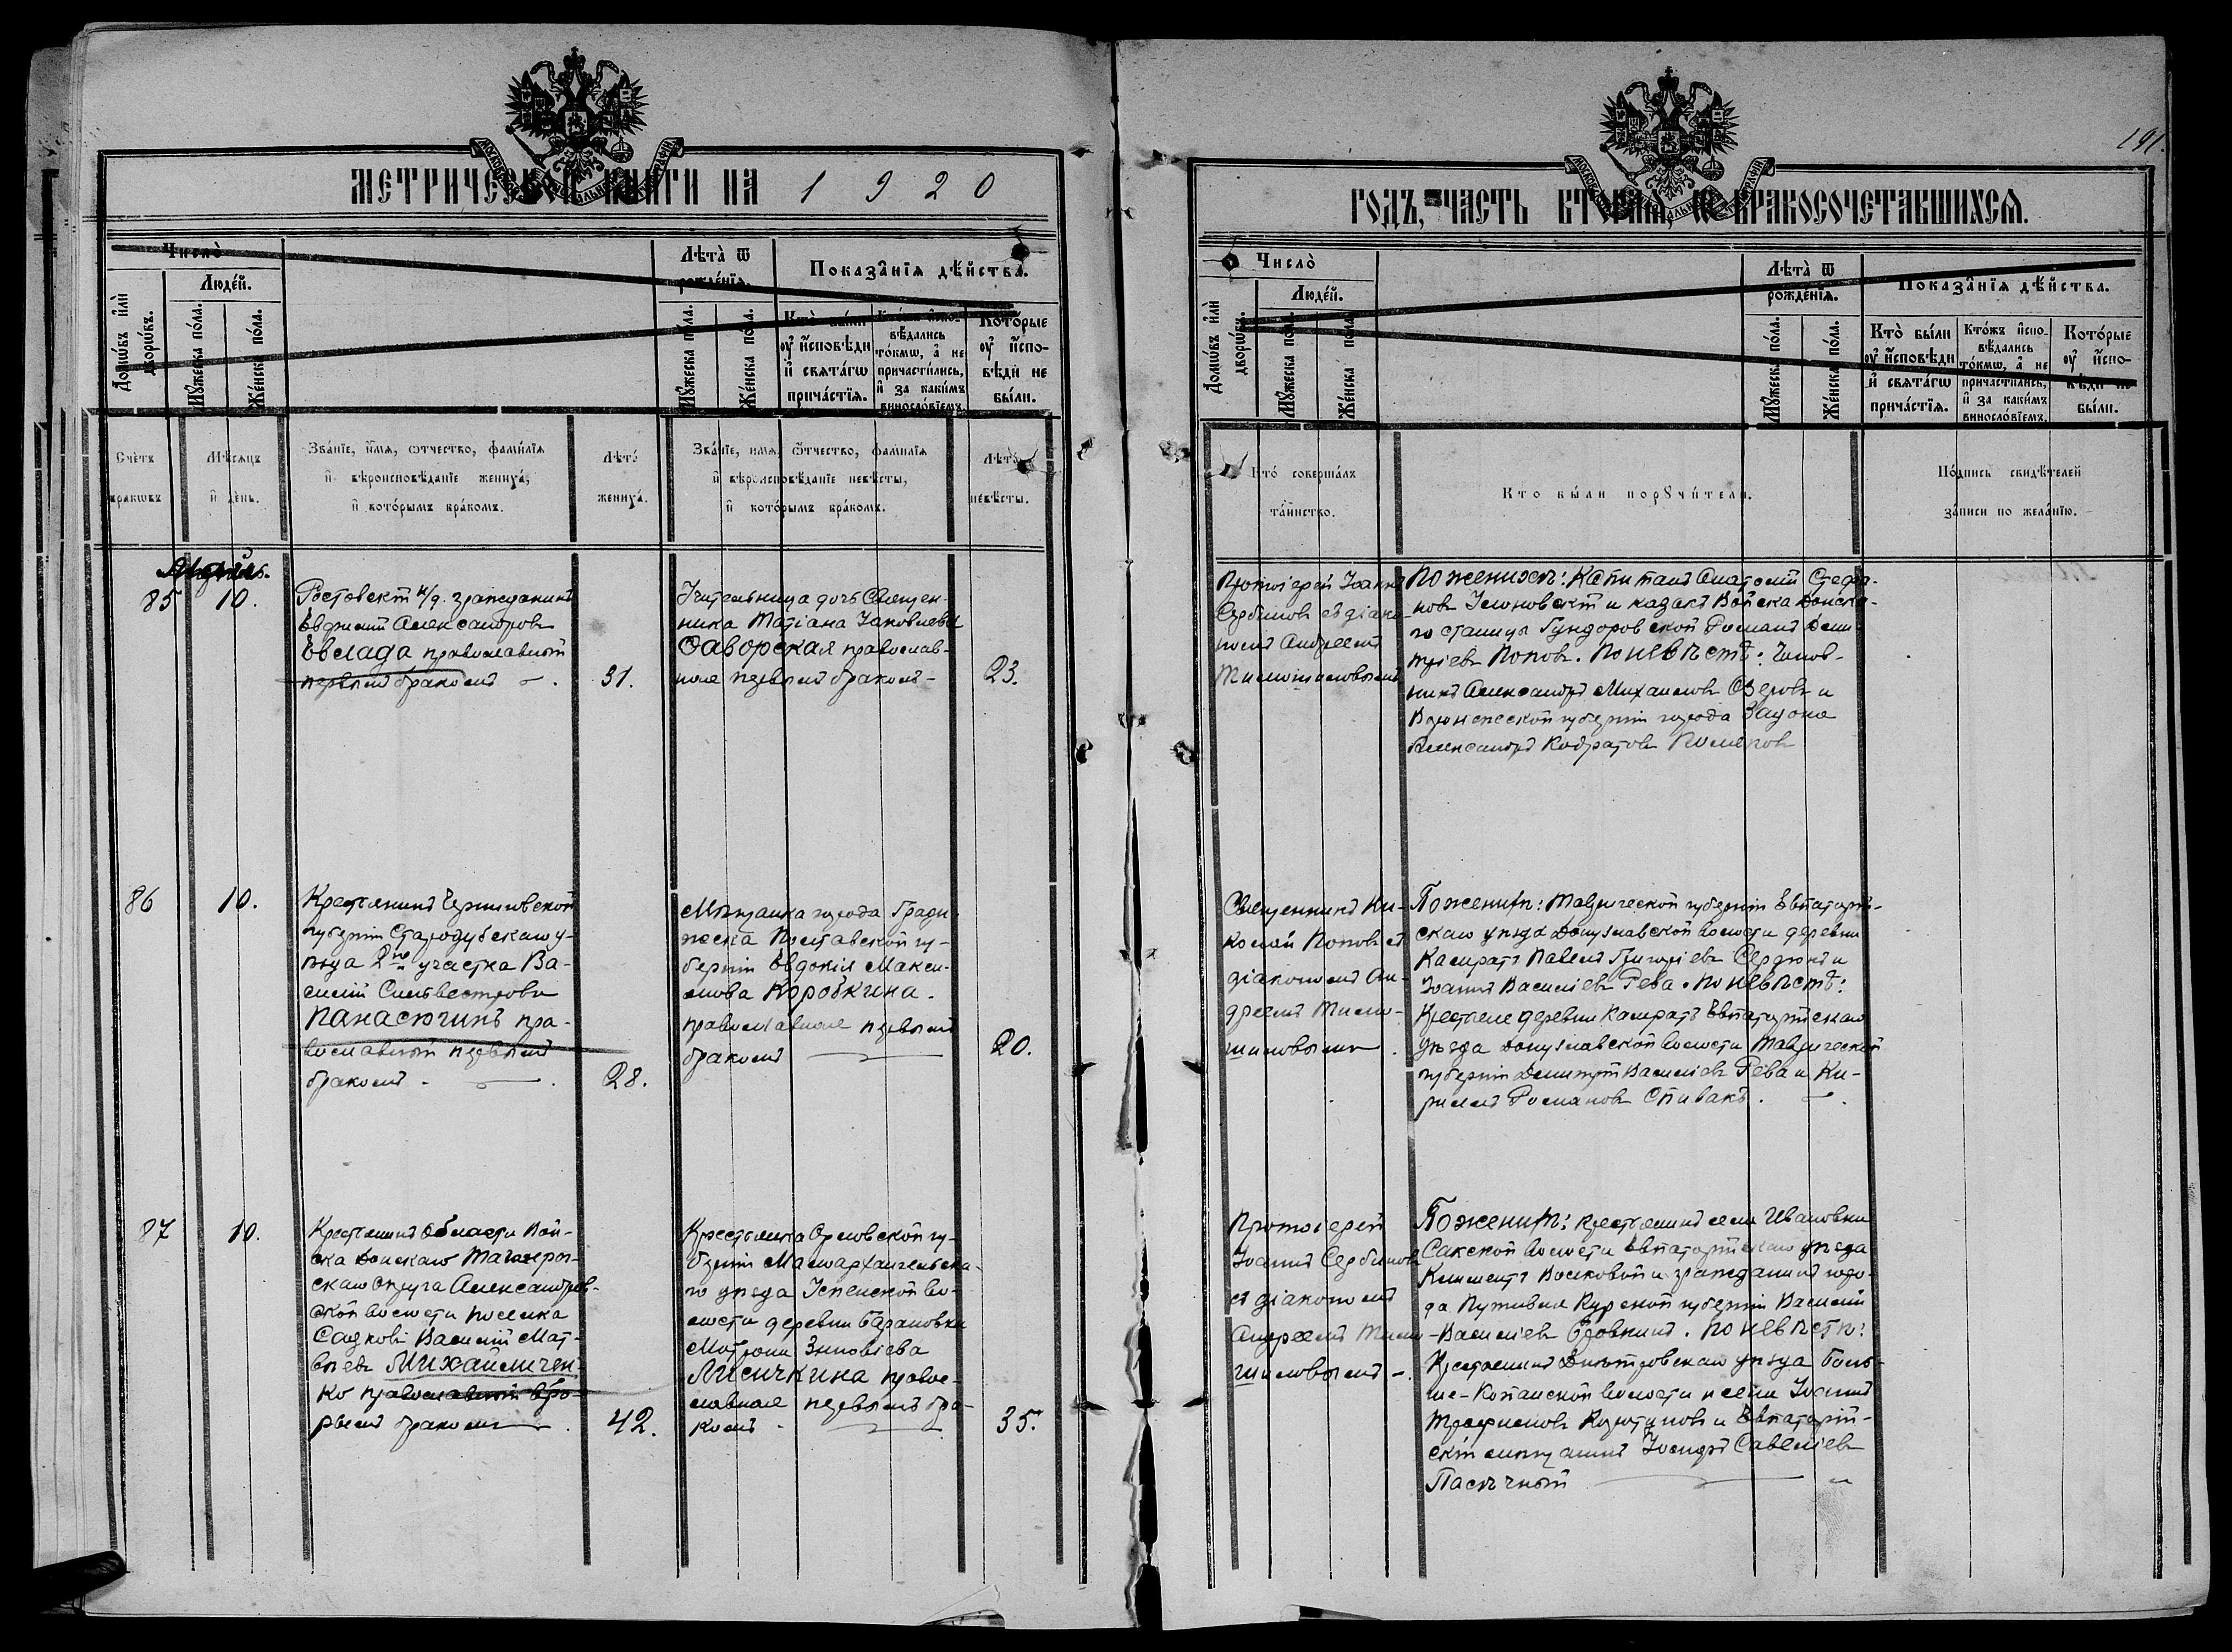 191.
МЕТРИЧЕСКОЙ КНИГИ НА 1920
ГОДЪ, ЧАСТЬ ВТОРАЯ, Ѡ БРАКОСОЧЕТАВШИХСЯ.
Число̀
Люде́й.
Домѡ́въ и҆лѝ дворѡ́въ.
Мꙋ́жеска по́ла.
Же́нска по́ла.
Лѣта̀ ѿ рожде́нїѧ.
Мꙋ́жеска по́ла.
Же́нска по́ла.
Показа̑нїѧ дѣ́йства.
Кто̀ бы́ли ᲂу҆ и҆сповѣди и҆ свѧта́гѡ прича́стїѧ.
Кто́жъ и҆сповѣдались то́кмѡ, а҆ не причасти́лись, и҆ за каки́мъ винослові́емъ.
Кото́рые ᲂу҆ и҆сповѣди не бы́ли.
Счётъ бракѡвъ
Мѣ́сѧцъ и҆ де́нь.
Зва́нїе, и҆́мѧ, ѻ҆́тчество, фамилїѧ и҆ вѣроисповѣданїе жениха̀, и҆ кото́рымъ бра́комъ.
Лѣта̀ жениха̀.
Зва́нїе, и҆́мѧ, ѻ҆́тчество, фамилїѧ и҆ вѣроисповѣданїе невѣ́сты, и҆ кото́рымъ бра́комъ.
Лѣта̀ невѣ́сты.
Кто̀ соверша́лъ та́инство.
Кто бы́ли порꙋчи́тели.
По́дпись свидѣ́телей за́писи по жела́нїю.
Апрѣль.
85 10.
Ростовскій н/Д. гражданинъ
Евфимій Александровъ
Евлада православный
первымъ бракомъ — 31.
Учительница дочь Священ-
ника Татіана Іаковлева
Ѳаворская православ-
ная первымъ бракомъ — 23.
Протоіерей Іоаннъ
Сербиновъ съ діако-
номъ Андреемъ
Тимошиловымъ
По женихѣ: Капитанъ Анатолій Стефа-
новъ и казакъ Войска Донска-
го станицы Гундоровской Романъ Дими-
тріевъ Поповъ. По невѣстѣ: Чинов-
никъ Александръ Михаиловъ Озеровъ и
Воронежской губерніи города
Александръ
86 10.
Крестьянинъ Черниговской
губерніи Стародубскаго у-
ѣзда 2го участка Ва-
силій Сильвестровъ
Панасюгинъ пра-
вославный первымъ
бракомъ — 28.
Мѣщанка города Гради-
жска Полтавской гу-
берніи Евдокія Макси-
мова Коробкина.
православная первымъ
бракомъ — 20.
Священникъ Ни-
колай Поповъ съ
діакономъ Ан-
дреемъ Тимо-
шиловымъ.
По женихѣ: Таврической губерніи Евпаторій-
скаго уѣзда Донузлавской волости деревни
Камратъ Павелъ Григоріевъ Сердюкъ и
Іоаннъ Василіевъ Рева. По невѣстѣ:
Крестьяне деревни Камратъ Евпаторійскаго
уѣзда Донузлавской волости Таврической
губерніи Димитрій Василіевъ Рева и Ки-
риллъ Романовъ Спивакъ.
87 10.
Крестьянинъ Области Вой-
ска Донскаго Таганрог-
скаго округа Александров-
ской волости поселка
Садковъ Василій Мат-
вѣевъ Михайличен-
ко православный вто-
рымъ бракомъ 42.
Крестьянка Орловской гу-
берніи Малоархангельска-
го уѣзда Успенской во-
лости деревни Барановки
Матрона Зиновіева
Лисичкина право-
славная первымъ бра-
комъ — 35.
Протоіерей
Іоаннъ Сербиновъ
съ діакономъ
Андреемъ Тимо-
шиловымъ —.
По женихѣ: крестьянинъ села Ивановки
Сакской волости Евпаторійскаго уѣзда
Климентъ Волковой и гражданинъ горо-
да Путивля Курской губерніи Василій
Василіевъ Бровкинъ. По невѣстѣ:
Крестьянинъ Днѣпровскаго уѣзда Боль-
ше-Копанской волости и села Іоаннъ
Трофимовъ и Евпаторій-
скій мѣщанинъ Іосифъ Савеліевъ
Пасѣчный